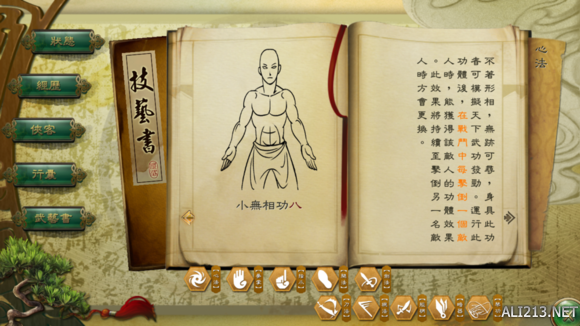 狀態
經歷
俠客
行囊
技藝書
技藝書
小無相功八
心法
不著形相，無跡可尋，身具此功
者可模擬天下武功發勁。運行此
功體後，在戰鬥中每擊倒一個敵
人時，能獲得該敵人的功體效果
。此效果將持續至擊倒另一名敵
人時方會更換。
ALI213.NET